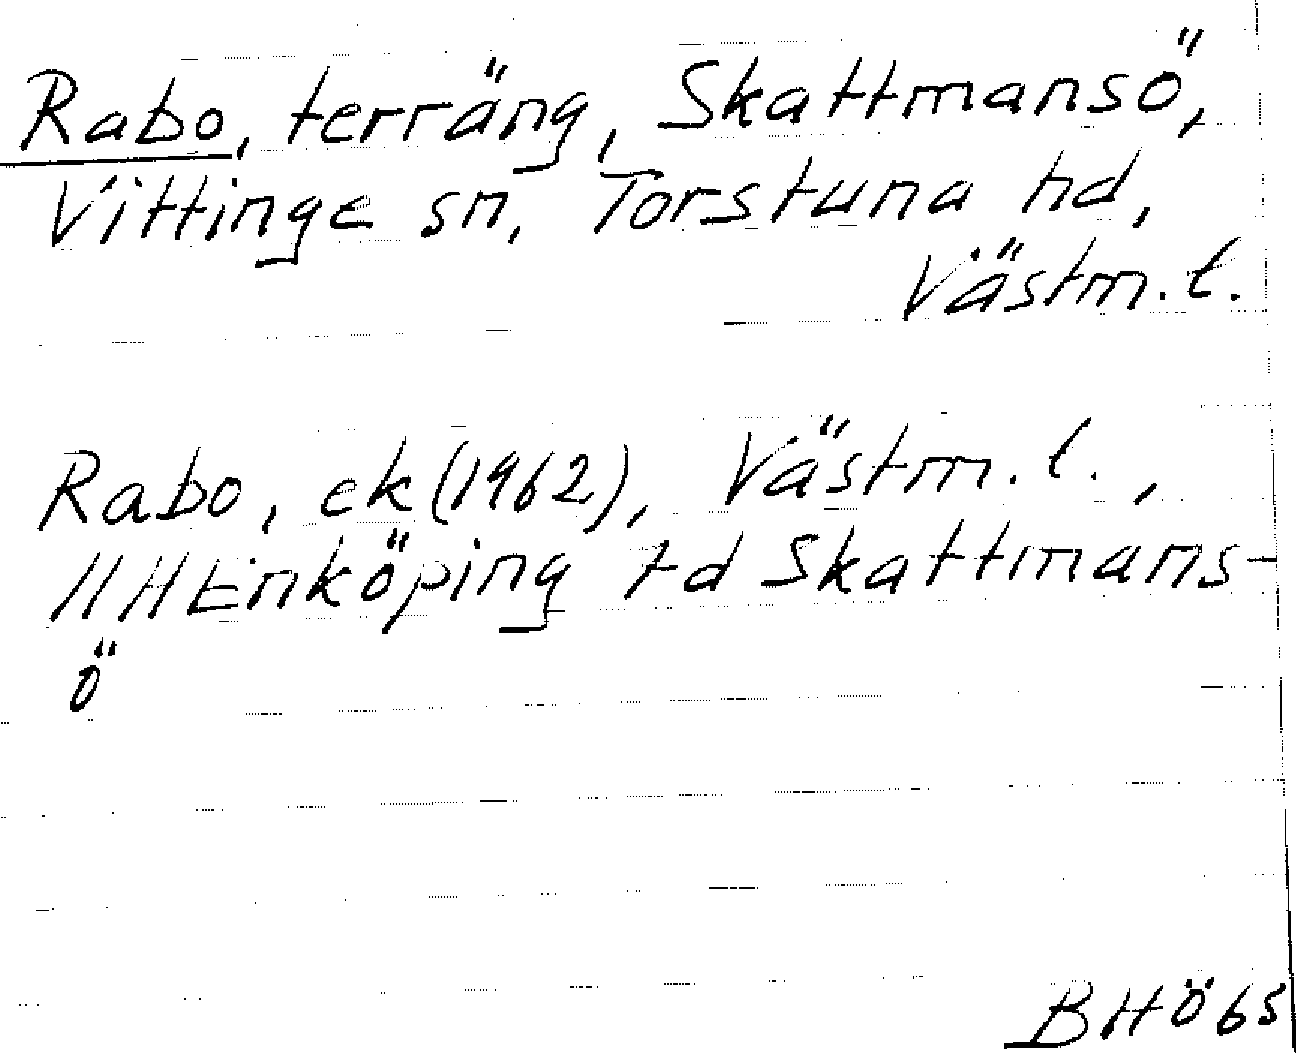 Rabo, terräng, Skattmansö,
Vittinge sn, Torstuna hd,
Västm. l.
Rabo, ek (1962), Västm. l.,
11H Enköping td Skattmans-
ö
BHö65